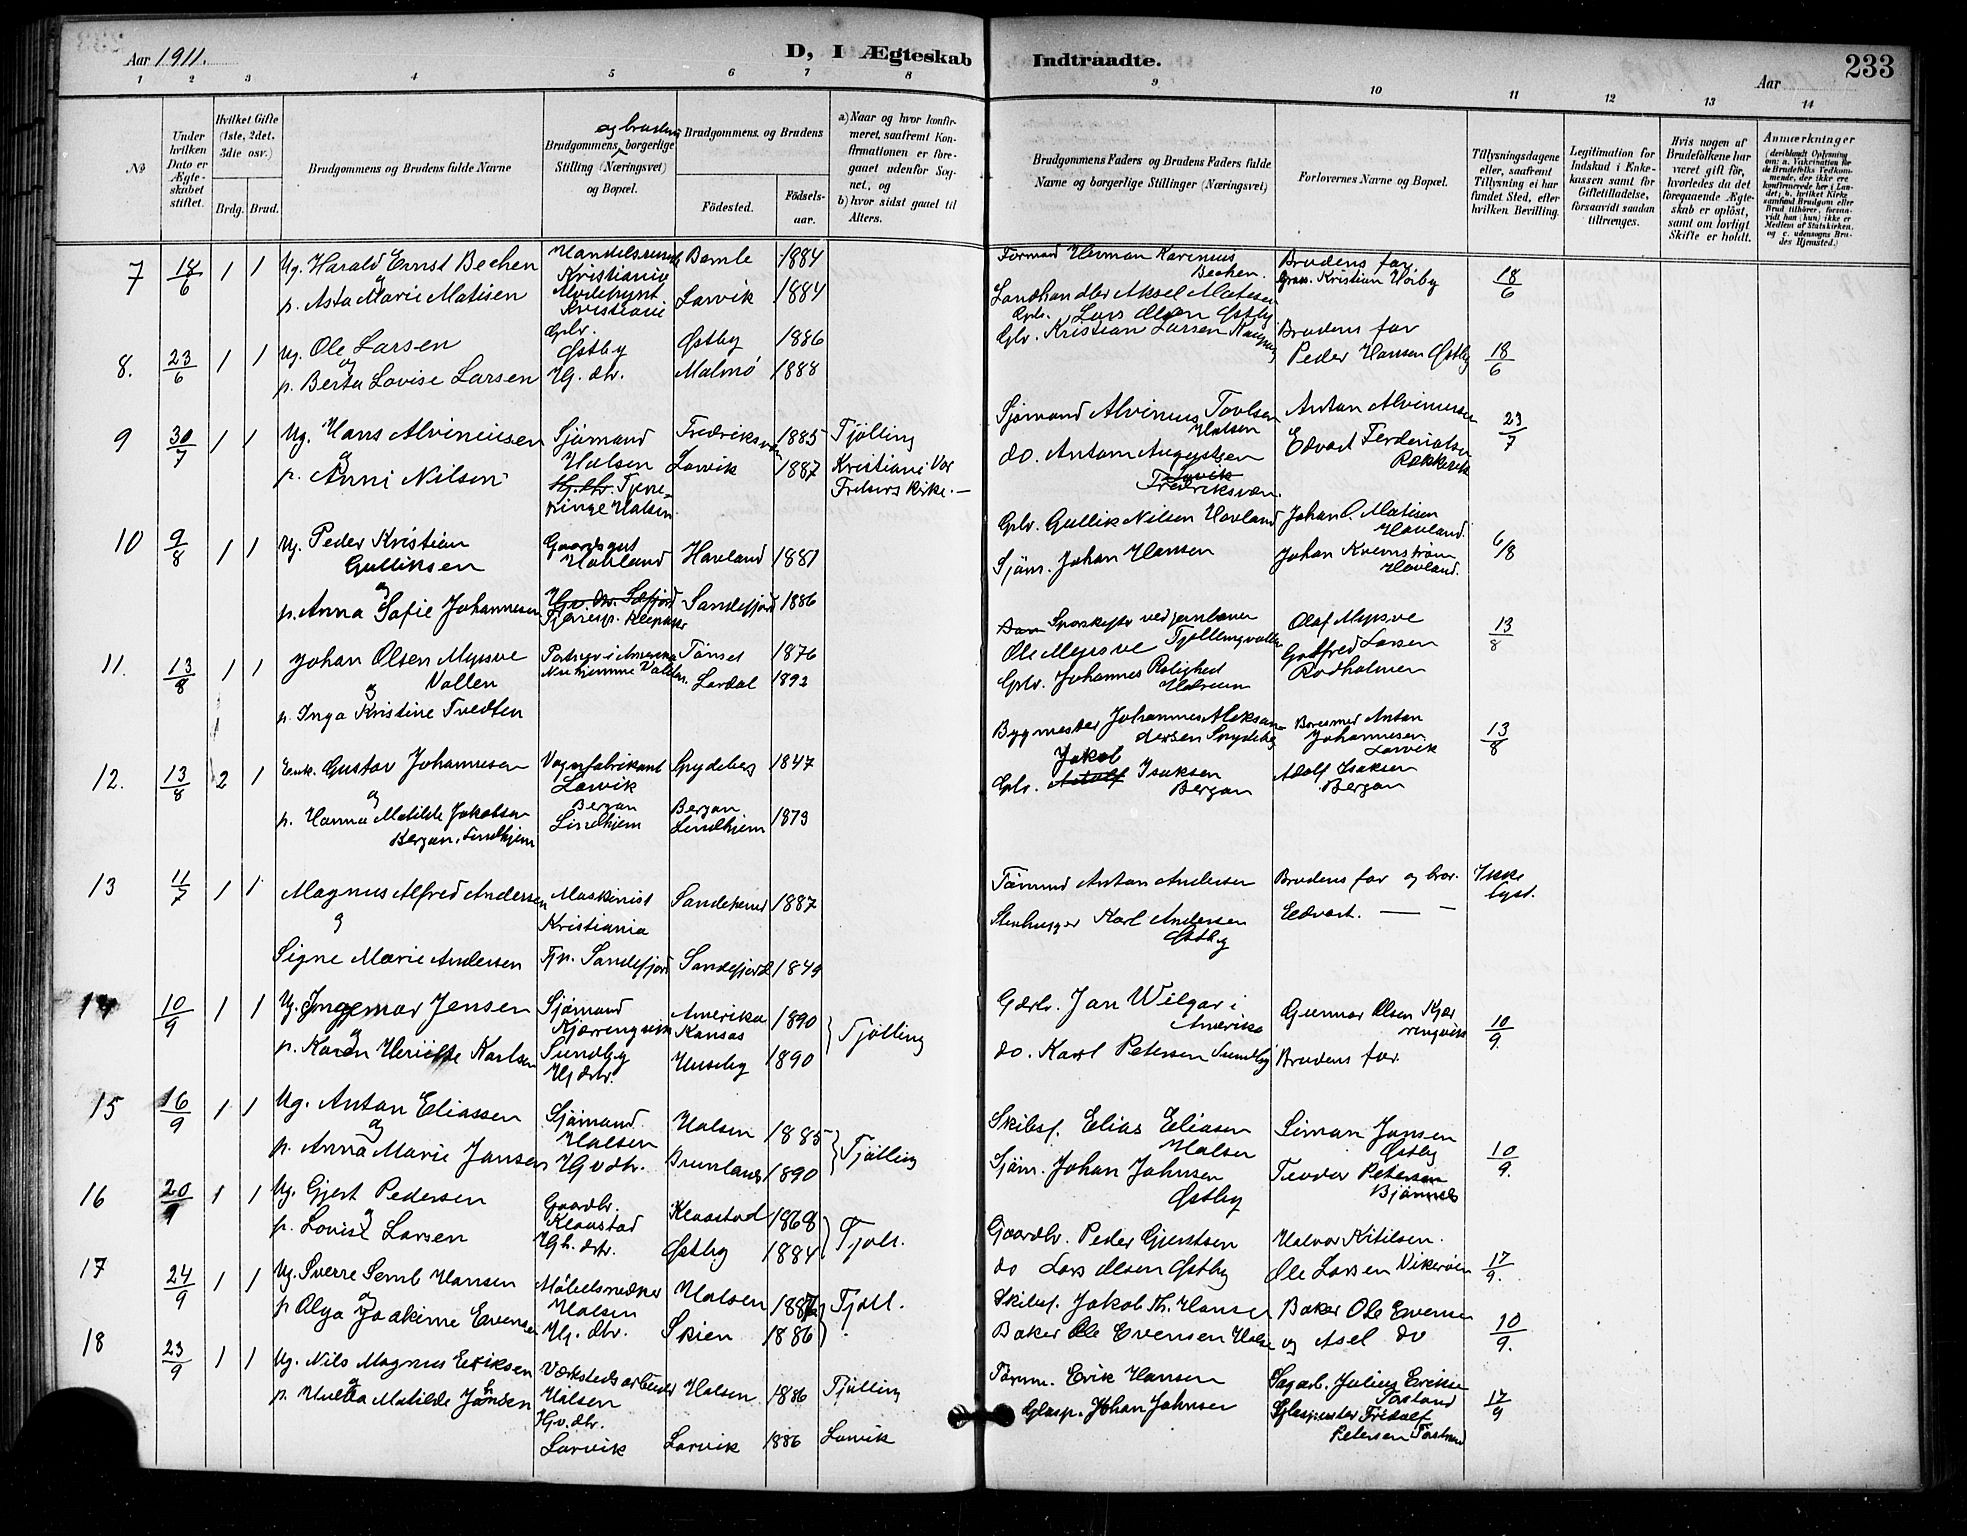 Aar 1911.
D, I Ægteskab Indtraadte.
Aar
233
1 2 3 4 5 6 7 8 9 10 11 12 13 14
No
Under hvilken Dato er Ægteskabet stiftet.
Hvilket Gifte (1ste, 2det, 3die osv.)
Brdg. Brud.
Brudgommens og Brudens fulde Navne
Brudgommens og brudens borgerlige Stilling (Næringsvei) og Bopæl.
Brudgommens og Brudens
Fødested. Fødselsaar.
a) Naar og hvor konfirmeret, saafremt Konfirmationen er foregaaet udenfor Sognet, og
b) hvor sidst gaaet til Alters.
Brudgommens Faders og Brudens Faders fulde Navne og borgerlige Stillinger (Næringsvei)
Forlovernes Navne og Bopæl.
Tillysningsdagene eller, saafremt Tillysning ei har fundet Sted, efter hvilken Bevilling.
Legitimation for Indskud i Enkekassen samt for Giftetilladelse, forsaavidt saadan tiltrænges.
Hvis nogen af Brudefolkene har været gift før, hvorledes da det foregaaende Ægteskab er opløst, samt om lovligt Skifte er holdt.
Anmærkninger
7 18/6 1 1 Ug. Harald Ernst Bechen Kristiania Bamle 1884 Herman Karenius Bechen. Brudens far 18/6
og
p. Asta Marie Matisen Kristiania Larvik 1884 Landhandler Aksel Matisen Kristian Hørby
8. 23/6 1 1 Ug. Ole Larsen Østby Østby 1886 Lars Olsen Østby Brudens far 18/6
og
p. Berta Lovise Larsen Hj. dtr. Malmø 1888 Kristian Larsen Peder Hansen Østby
9 30/7 1 1 Ug. Hans Alviniusen Sjømand Halsen 1885 Tjølling Sjømand Alvinius Halsen Anton Alviniusen 23/7
og
p. Anni Nilsen Halsen Larvik 1887 Kristiania Vor Frelsers kirke. do. Antom Augustsen Fredriksværn. Edvart
10 9/8 1 1 Ug. Peder Kristian Gulliksen Hovland Hovland 1881 Gullik Nilsen Hovland Johan O. Matisen Hovland. 6/8
og
p. Anna Sofie Johannesen Sandefjord 1886 Sjøm. Johan Hansen Johan Hovland.
11. 13/8 1 1 Johan Olsen Mysve Vollen Tønset 1876 Ole Mysve Olaf Mysve 13/8
og
p. Inga Kristine Tvedten Lardal 1892 Johannes Rolighed Gotfred Larsen Rødholmen
12. 13/8 2 1 Enk. Gustav Johannesen Vognfabrikant Larvik Spydeberg 1847 Bygmester Johannes Aleksandersen Spydeberg Anton Johannesen Larvik 13/8
og
p. Hanna Matilde Jakobsen Bergan, Lindhjem Bergan Lindhjem Bergan Lindhjem 1873 Jakob Isaksen Bergan Adolf Isaksen Bergan
13 11/7 1 1 Magnus Alfred Andersen Maskinist Kristiania 1887 Anton Andersen Brudens far og bror. Ikke lyst.
og
Signe Marie Andersen Sandefjord Sandefjord 1849 Stenhugger Karl Andersen Østby Edvart. — —
14 10/9 1 1 Ug. Ingemar Jensen Sjømand Kjærringvik Amerika Kansas 1890 Tjølling Jan Wilgar i Amerika Gunnar Olsen Kjærringvik 10/9.
og
p. Karen Karlsen Sundby Hj. dtr. Huseby 1890 do. Karl Petersen Sundby Brudens far.
15 16/9 1 1 Ug. Anton Eliassen Sjømand Halsen Halsen 1885 Tjølling Skibsf. Elias Eliasen Halsen Simon Jansen Østby 10/9.
og
p. Anna Marie Jansen Hj. v dtr. Brunlanes 1890 Sjøm. Johan Johnsen Østby Teodor Petersen Bjønnes
16 20/9 1 1 Ug. Gjert Pedersen Gaardbr. Klaastad Klaastad 1868 Tjøll. Gaardbr. Peder Gjertsen Halvor Kitilsen. 17/9.
og
p. Lovise Larsen Hj. dtr. Østby 1884 do Lars Olsen Østby Ole Larsen Vikerøen
17 24/9 1 1 Ug. Sverre Semb Hansen Møbelsnedker Halsen Halsen Tjøll. Skibsf. Jakob Th. Hansen Baker Ole Evensen 10/9.
og
p. Olga Joakime Evensen Hj. dtr. Skien 1886 Baker Ole Evensen Halsen og Asel do
18 23/9 1 1 Ug. Nils Magnus Eriksen Værkstedsarbeider Halsen Halsen 1886 Tjølling Tømm. Erik Hansen Sagarb. Julius Eriksen Torstrand 17/9
og
p. Hulda Matilde Jansen Hj. v. dtr. Larvik Larvik 1886 Larvik Glasp. Johan Johnsen Glaspuster Fridolf Petersen Torstrand